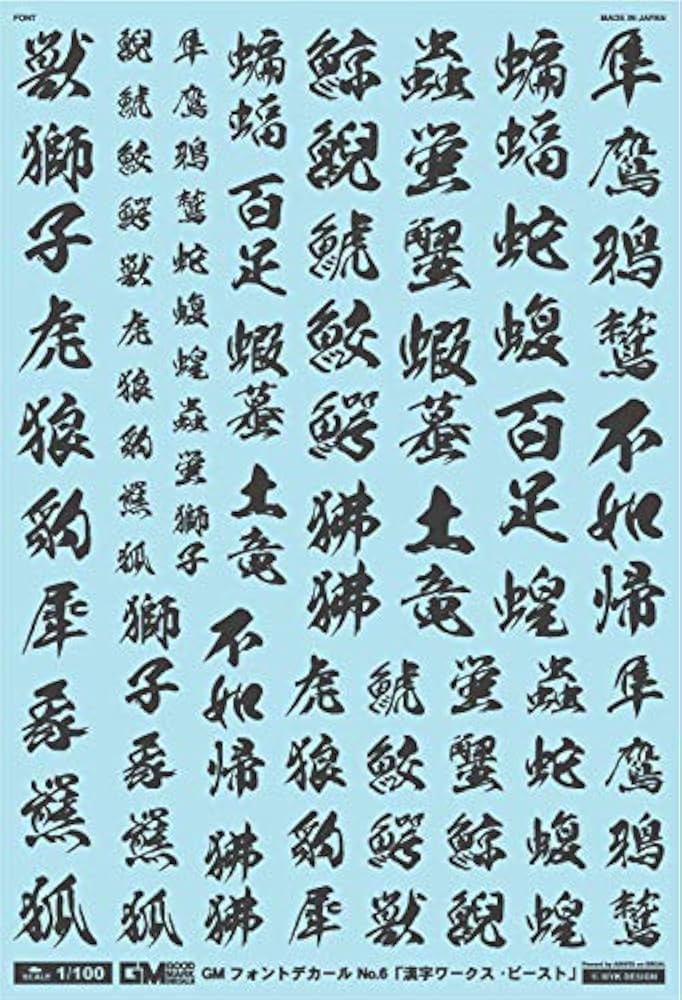 FONT
MADE IN JAPAN
隼鷹鴉鷲不如帰
蝙蝠蛇蝮百足蝗
蟲蛍蟹蝦蟇土竜
鯨鯢鯱鮫鰐狒狒
蝙蝠百足蝦蟇土竜
隼鷹鴉鷲蛇蝮蝗蟲蛍獅子
鯢鯱鮫鰐獣虎狼豹羆狐
獣獅子虎狼豹犀豕羆狐
隼鷹鴉鷲
蟲蛇蝮蝗
蛍蟹鯨鯢
鯱鮫鰐獣
虎狼豹犀
不如帰狒狒
獅子豕羆狐
SCALE 1/100
GM GOOD MARK
GM フォントデカール No.6「漢字ワークス・ビースト」